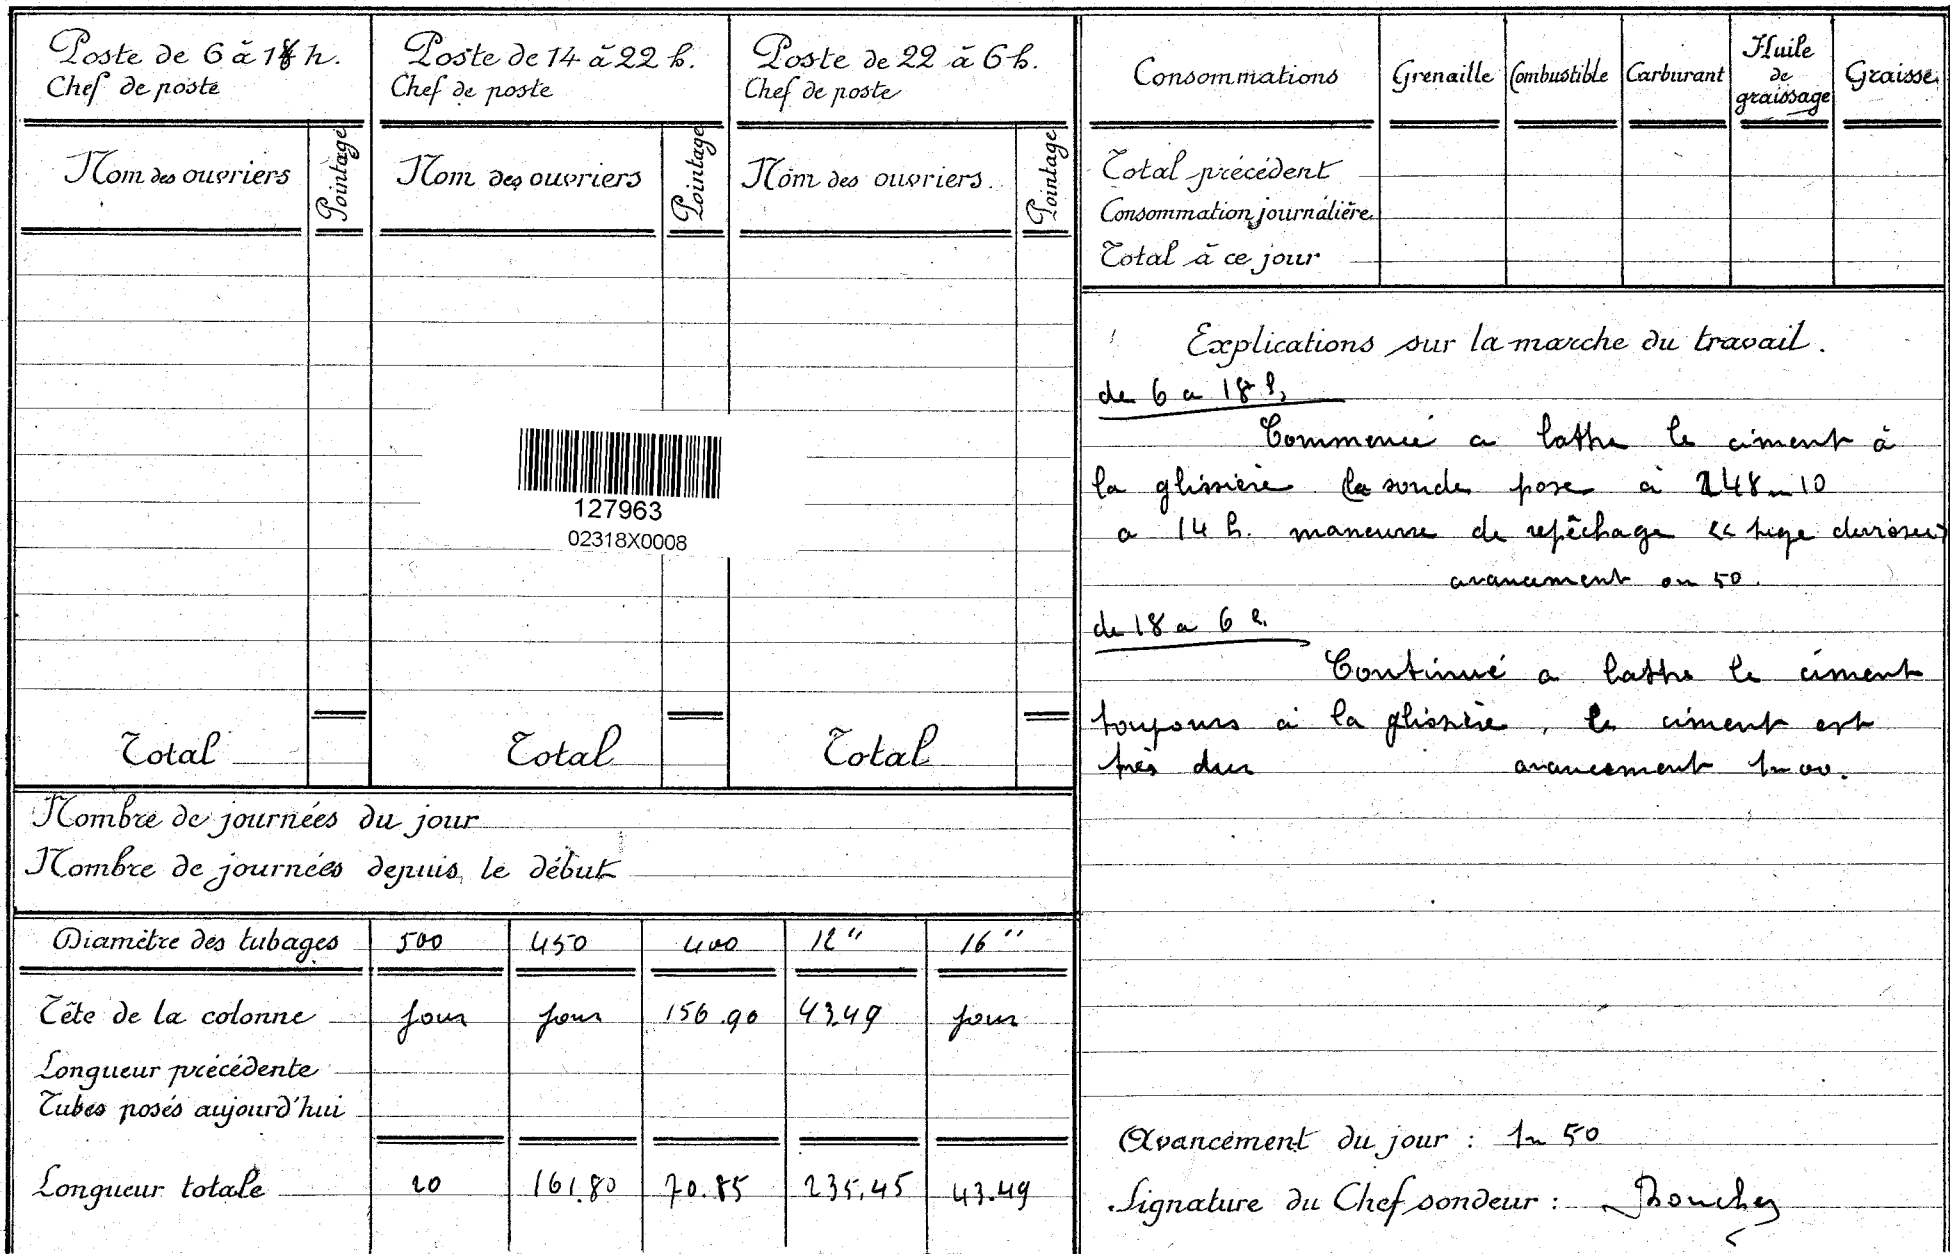 Poste de 6 à 18 h.
Chef de poste
Nom des ouvriers
Pointage
Total
Poste de 14 à 22 h.
Chef de poste
Nom des ouvriers
Pointage
Total
Poste de 22 à 6 h.
Chef de poste
Nom des ouvriers.
Pointage
Total
127963
02318X0008
Nombre de journées du jour
Nombre de journées depuis le début
Diamètre des tubages 500 450 400 12" 16"
Tête de la colonne jour jour 156.90 43.49 jour
Longueur précédente
Tubes posés aujourd'hui
Longueur totale 20 161.80 70.85 235.45 43.49
Consommations Grenaille Combustible Carburant Huile de graissage Graisse
Total précédent
Consommation journalière
Total à ce jour
Explications sur la marche du travail.
de 6 a 18 h
Commencé a battre le ciment à
la glissière la sonde pose a 248m10
a 14 h. maneuvre de repêchage << tige
avancement 0m 50.
de 18 a 6 h.
Continué a battre le ciment
toujours a la glissière, le ciment est
très dur avancement 1m00.
Avancement du jour : 1m 50
Signature du Chef sondeur :